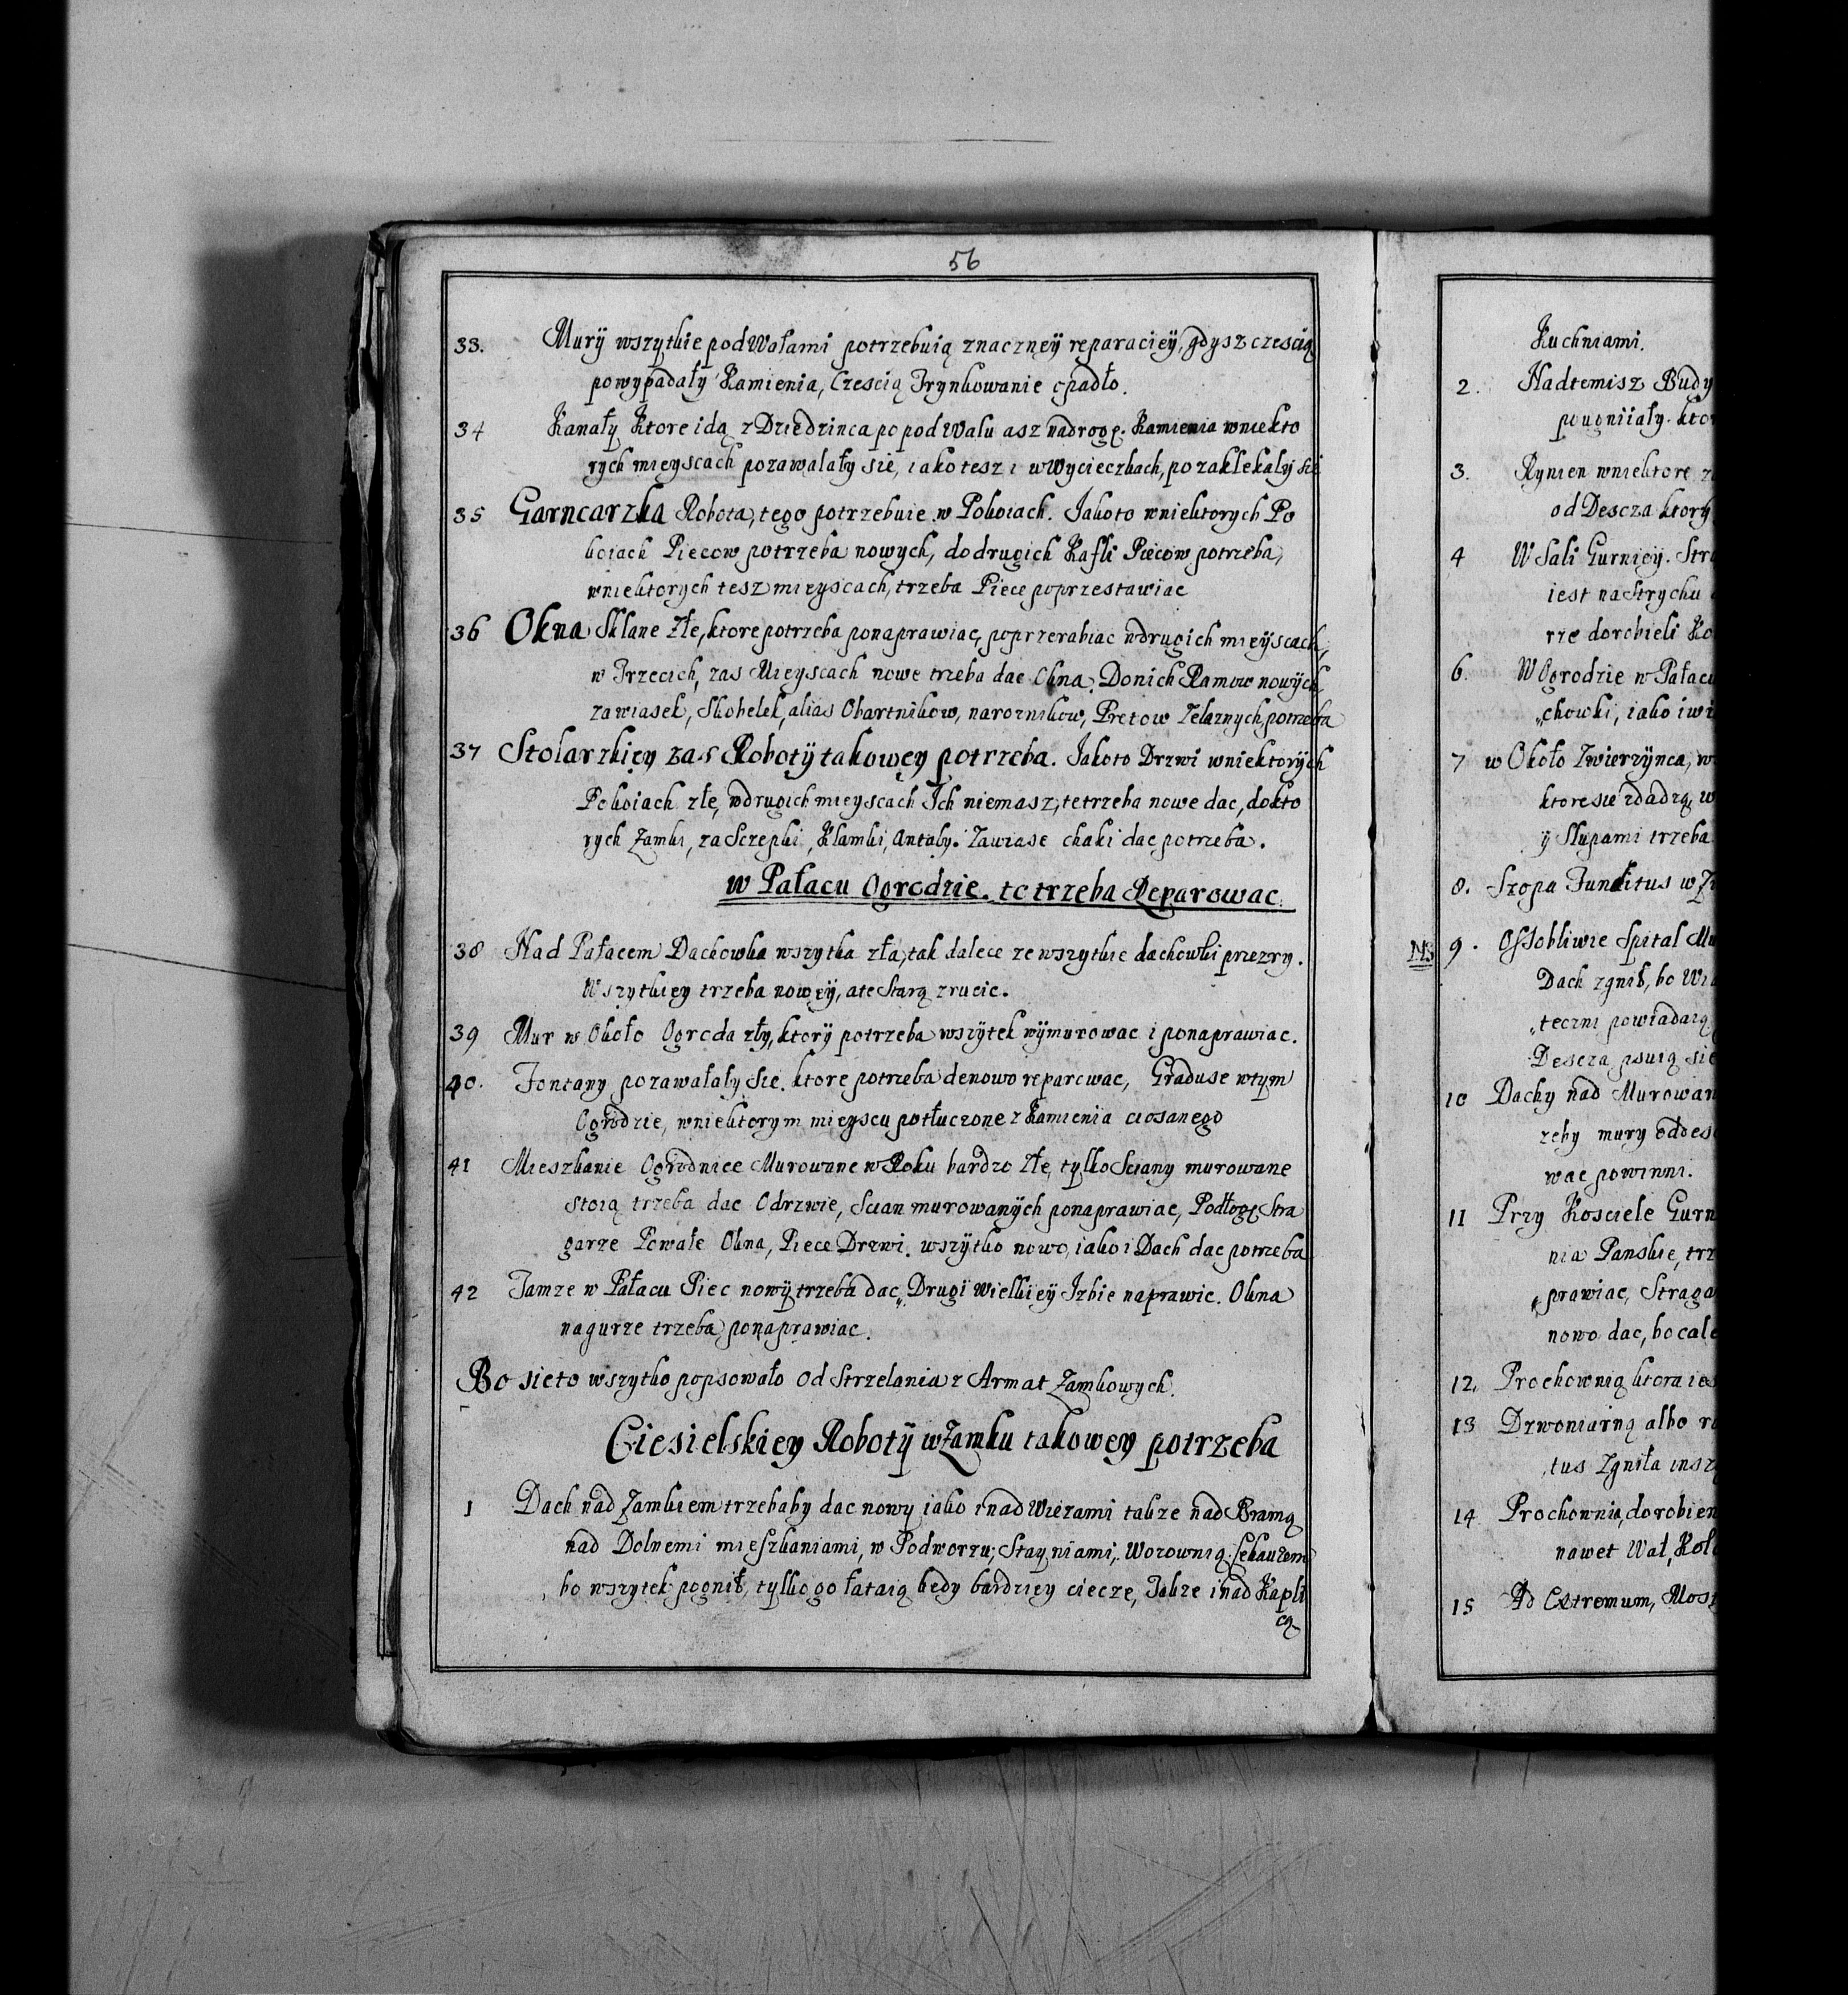 56
33. Murÿ wszytkie pod Wałami potrzebuią znacznęÿ reparacięÿ, gdysz czescią
powypadały Kamienia, Czescią Trynkowanie opadło.
34 Kanały Ktore idą z Dziedzinca po pod Wału asz nadrogę. Kamienia wniekto
rych mieyscach pozawalały sie, iako tesz i wWycieczkach, pozaklekały sie
35 Garncarzka Robota, tego potrzebuie w Pokoiach. Jakoto wniektorych Po
koiach Piecow potrzeba nowych, do drugich Kafli Piecow potrzeba,
wniektorych tesz mieyscach, trzeba Piece poprzestawiac
36 Okna Sklane Złe, ktore potrzeba ponaprawiac, poprzerabiac wdrugich mieÿscach,
w Trzecich, zas Mieyscach nowe trzeba dac Okna. Donich Ramow nowÿch
zawiasek, Skobelek, alias Obartnikow, naroznikow, Pretow Zelaznych, potrzeba
37 Stolarzkięy zas Robotÿ takowęy potrzeba. Jakoto Drzwi wniektorÿch
Pokoiach złe, wdrugich mieyscach Jch niemasz, te trzeba nowe dac, dokto
rych Zamki, zaSczepki, Klamki, Antaby. Zawiase chaki dac potrzeba.
w Pałacu Ogrodzie. to trzeba Reparowac.
38 Nad Pałacem Dachowka wszytka zła, tak dalece ze wszytkie dachowki przezry.
Wszytkięy trzeba nowęÿ, ate Starą zrucic.
39 Mur w Około Ogroda zły, ktorÿ potrzeba wszÿtek wÿmurowac i ponaprawiac.
40. Fontany pozawałały Sie. ktore potrzeba denowo reparowac, Graduse wtym
Ogrodzie, wniektorym mieyscu potłuczone z Kamienia ciosanego
41 Mieszkanie Ogrodnice Murowane w Roku bardzo Złe, tylko Sciany murowane
stoią trzeba dac Odrzwie, Scian murowanÿch ponaprawiac, Podłogę Stra
garze Powałe Okna, Piece Drzwi. wszÿtko nowo, iako i Dach dac potrzeba
42 Tamze w Pałacu Piec nowÿ trzeba dac, Drugi Wielkięÿ Jzbie naprawic. Okna
nagurze trzeba ponaprawiac.
Bo sie to wszytko popsowało od Strzelania z Armat Zamkowych.
Ciesielskiey Robotÿ w Zamku takowey potrzeba
1 Dach nad Zamkiem trzebaby dac nowy iako i nad Wiezami takze nad Bramą
nad Dolnemi mieszkaniami, w Podworzu, Stayniami, Wozownią
bo wszytek pognił, tylko go łataią kedy bardziey ciecze, Takze i nad Kapli
cą
Kuchniami.
2. Nadtemisz Budy
pougniiały. ktor
3. Rynien wniektore
od Descza ktory
4 W Sali Gurnięÿ. Str
iest na Strychu
rze dorobieli Ko
6. W Ogrodzie w Pałacu
chowki, iako i wi
7 w Około Zwierzÿnca, w
ktore sie zdadzą, w
ÿ Słupami trzeba
8. Szopa Funditus w
NB 9. Ossobliwie Spital Mu
Dach zgnił, bo
teczni powiadaią
Descza psuią sie
10 Dachy nad Murowan
zeby mury oddes
wac powinni.
11 Przy Kosciele Gurn
nia Panskie, trz
prawiac, Straga
nowo dac, bo cale
12. Prochownią ktora ies
13 Dzwoniarnią albo
tus Zgniła insz
14 Prochownia, dorobien
nawet Wał, Koło
15 Ad Extremum, Most